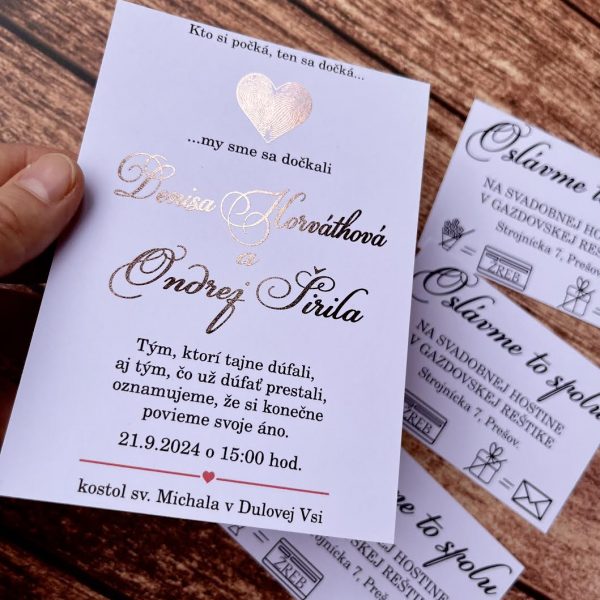 Kto si počká, ten sa dočká...
...my sme sa dočkali
Denisa Horváthová
a
Ondrej Širila
Tým, ktorí tajne dúfali,
aj tým, čo už dúfať prestali,
oznamujeme, že si konečne
povieme svoje áno.
21.9.2024 o 15:00 hod.
kostol sv. Michala v Dulovej Vsi
Oslávme to
NA SVADOBNEJ HOSTINE
V GAZDOVSKEJ REŠTIKE
Strojnícka 7, Prešov.
ŽREB
Oslávme to spolu
NA SVADOBNEJ HOSTINE
V GAZDOVSKEJ REŠTIKE
Strojnícka 7, Prešov.
ŽREB
to spolu
HOSTINE
REŠTIKE
7, Prešov.
ŽREB